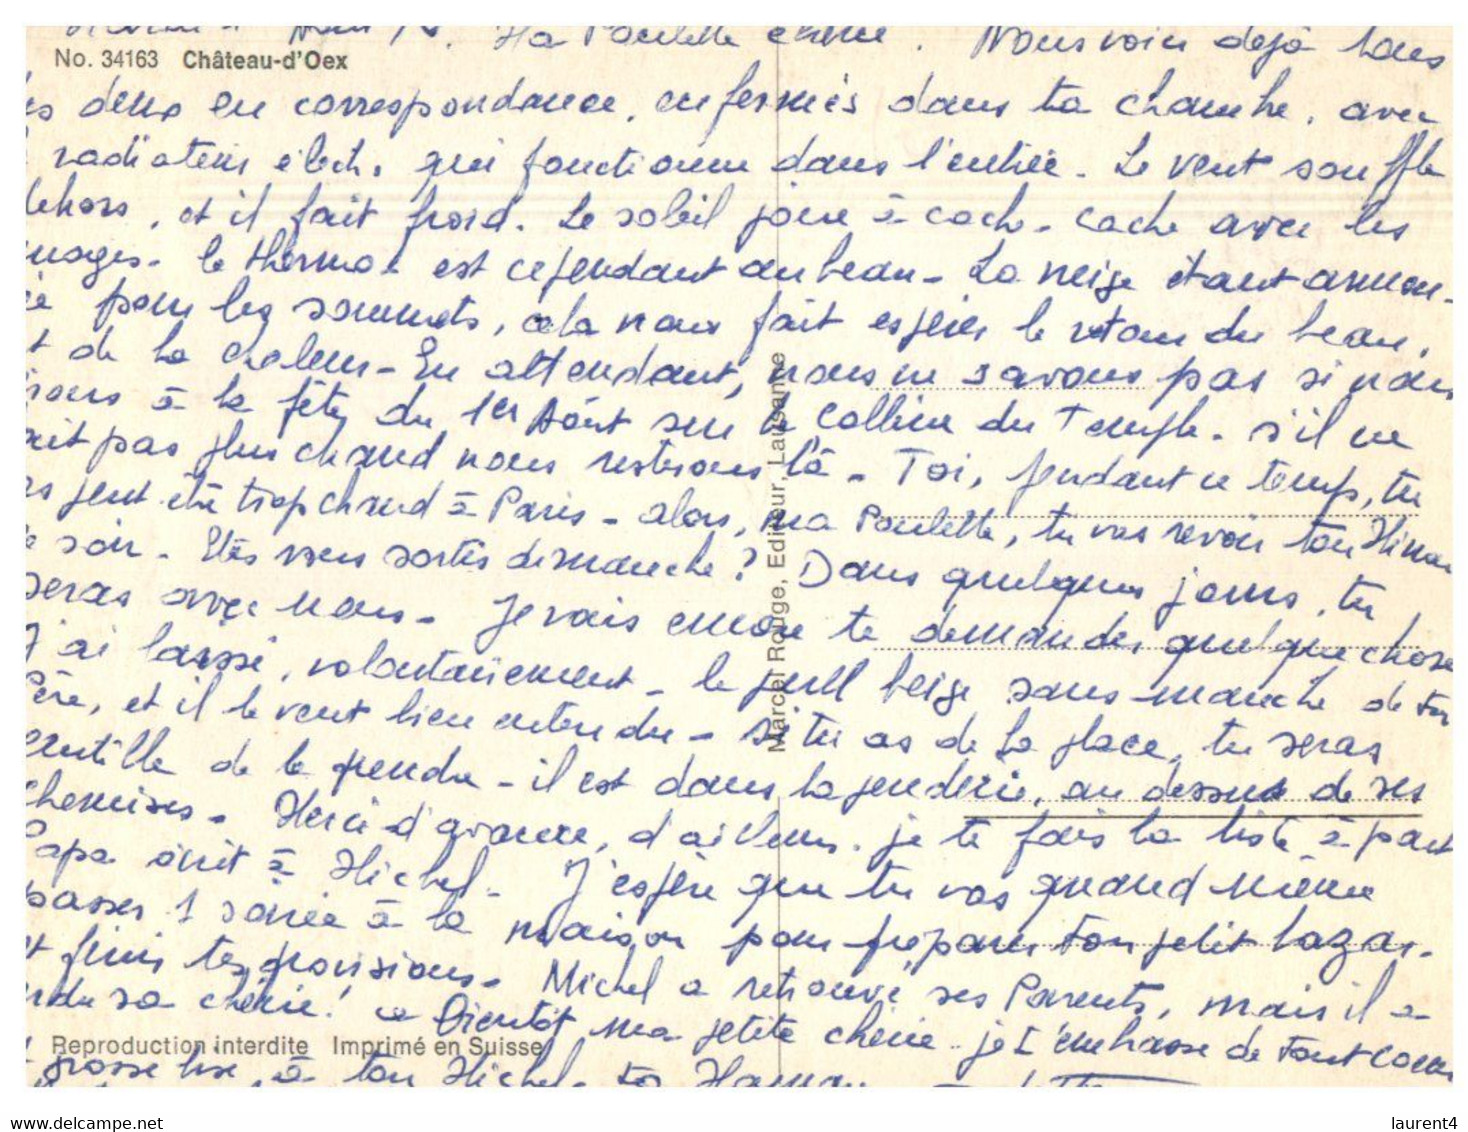 Ma Paulette chérie. Nous voici déjà tous
No. 34163 Château-d'Oex
deux en correspondance, enfermés dans ta chambre, avec
radiateur élect. qui fonctionne dans l'entrée. Le vent souffle
dehors, et il fait froid. Le soleil joue à cache-cache avec les
nuages. le thermo est cependant au beau. La neige étant annon-
cée pour les sommets, cela nous fait espérer le retour du beau,
et de la chaleur. En attendant, nous ne savons pas si nous
irons à la fête du 1er Août sur la colline du Temple. s'il ne
fait pas plus chaud nous resterons là. Toi, pendant ce temps, tu
as peut être trop chaud à Paris. alors, ma Paulette, tu vas revoir ton
ce soir. Etes vous sortis dimanche? Dans quelques jours, tu
seras avec nous. Je vais encore te demander quelque chose
J'ai laissé, volontairement, le pull beige sans manche de ton
Père, et il le veut bien entendu. Si tu as de la place, tu seras
gentille de le prendre. il est dans la penderie, au dessus de ses
chemises. Merci d'avance, d'ailleurs. je te fais la liste à part
Papa écrit à Michel. J'espère que tu vas quand même
passer 1 soirée à la maison pour préparer ton petit bazar.
et finir tes provisions. Michel a retrouvé ses Parents, mais il a
perdu sa chérie! à Bientôt ma petite chérie. je t'embrasse de tout coeur
Reproduction interdite Imprimé en Suisse
grosse bise à ton Michel. ta Maman
Marcel Rouge, Editeur, Lausanne
laurent4